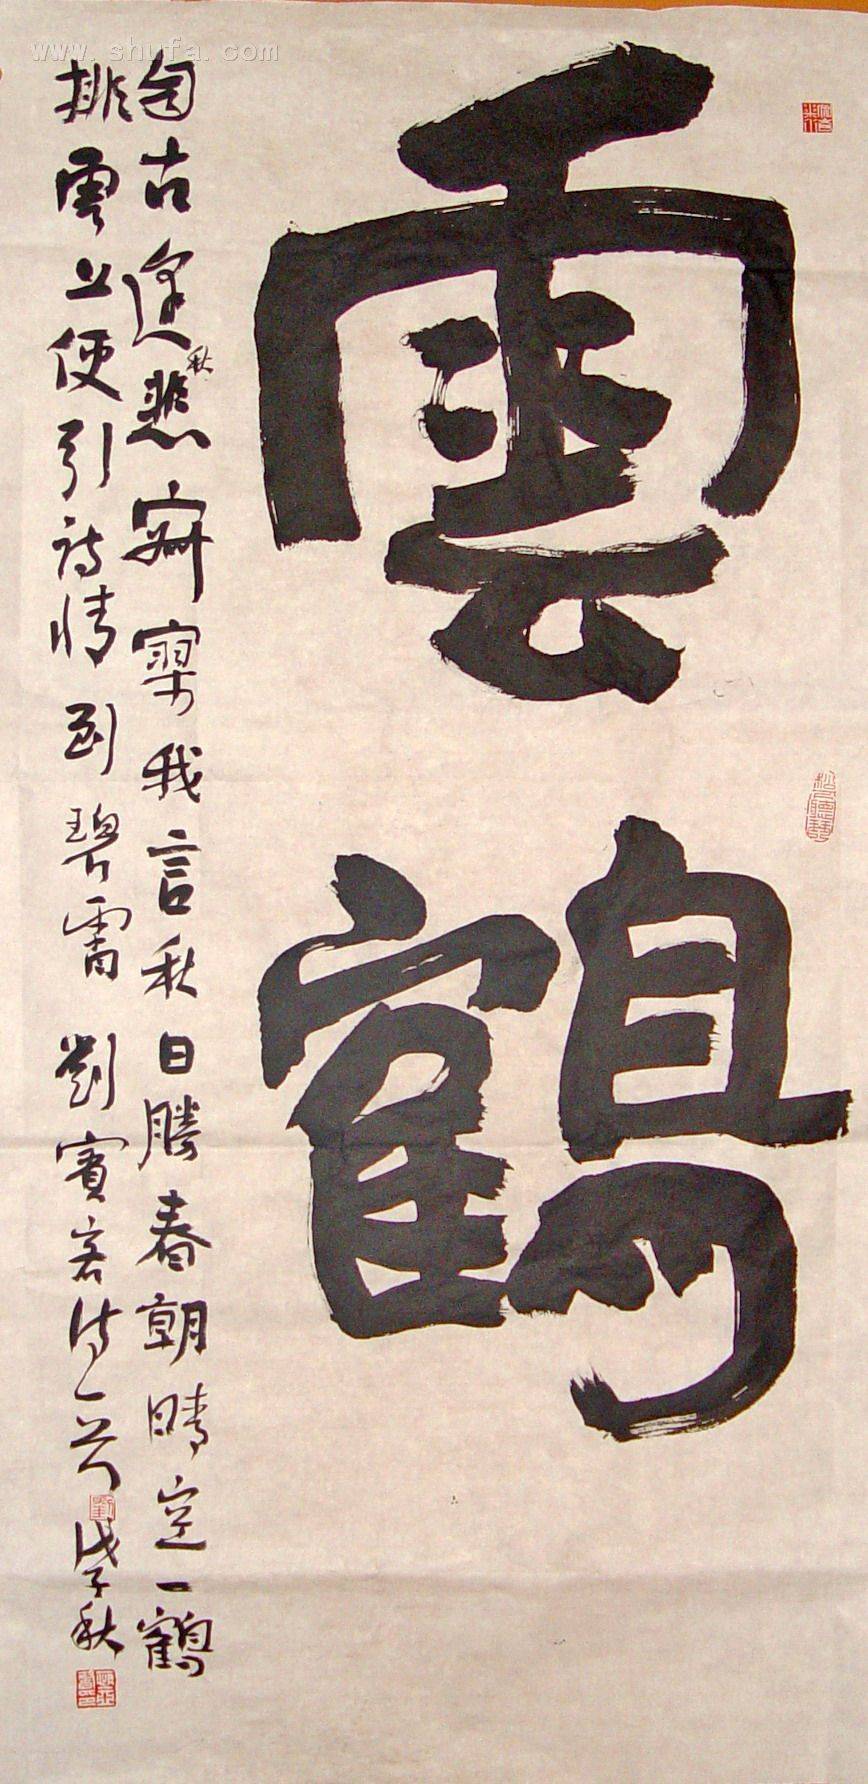 雲鶴
自古逢悲寂寥我言秋日勝春朝晴空一鶴
秋
排雲上便引詩情到碧霄 劉賓客詩一首
戊子秋
www.shufa.com